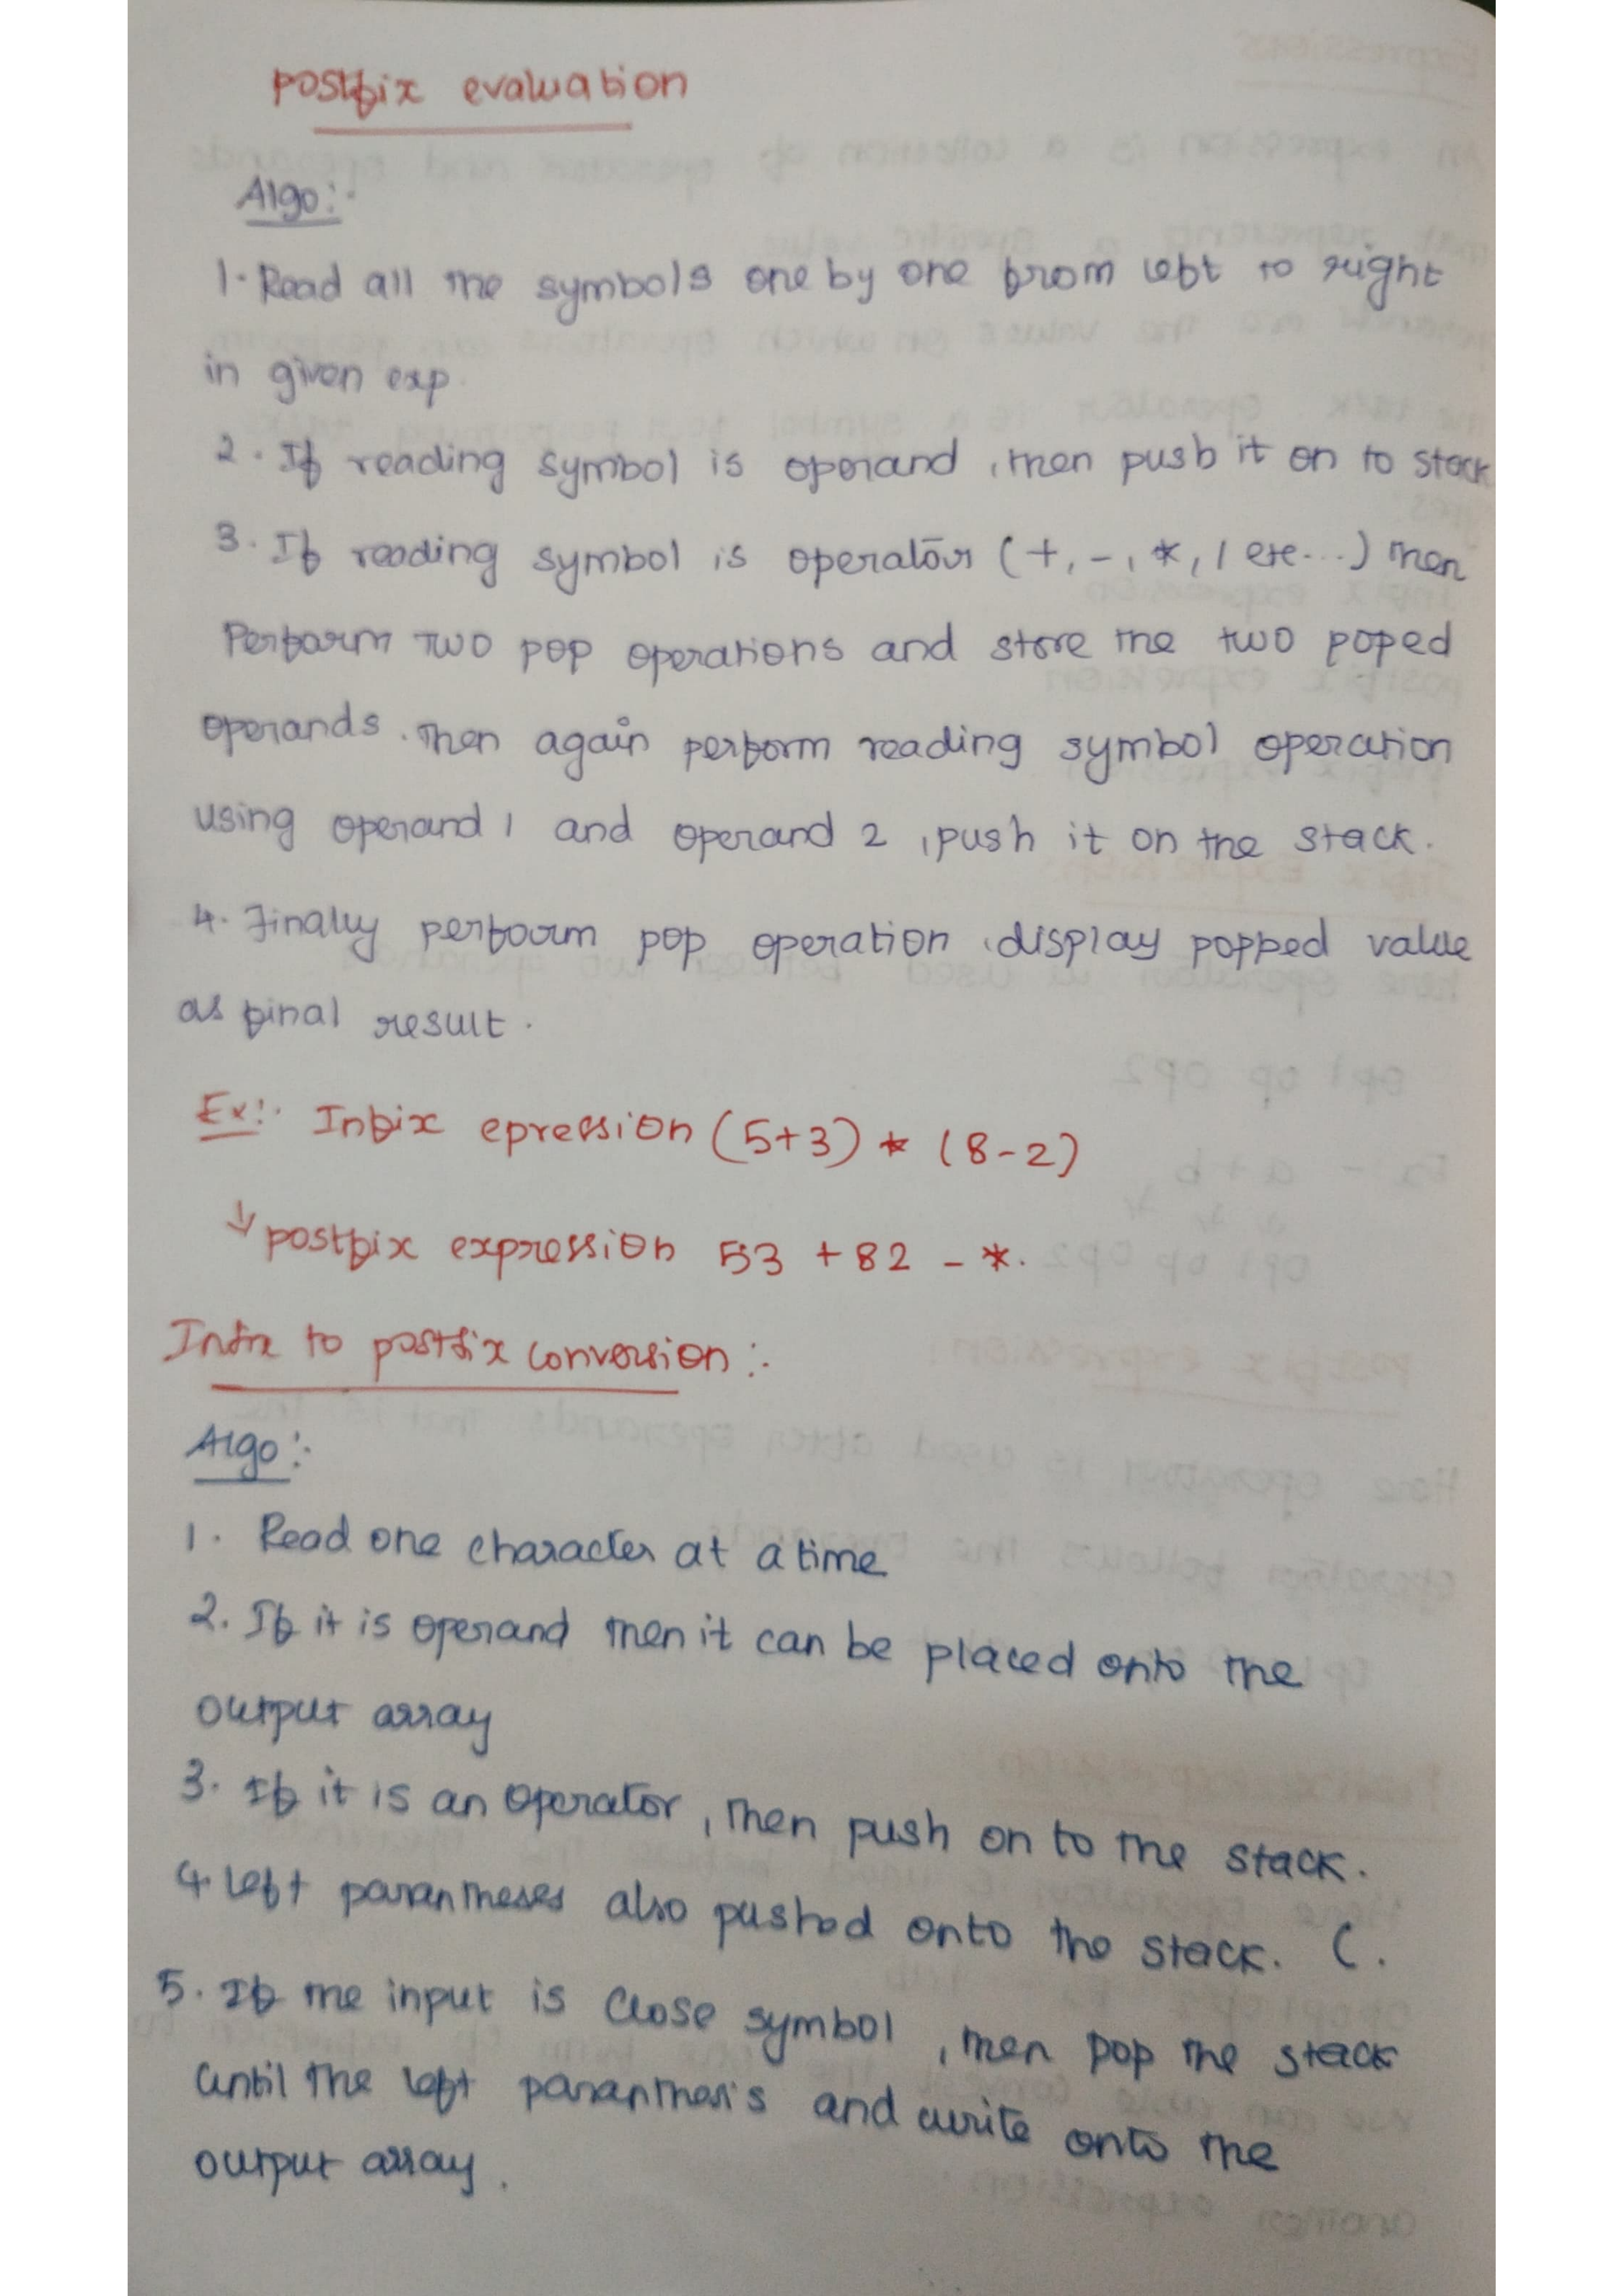 Postfix evaluation
Algo:-
1. Read all the symbols one by one from left to right
in given exp.
2. If reading symbol is operand, then push it on to stack
3. If reading symbol is operator (+, -, *, / etc...) then
Perform two pop operations and store the two poped
operands. Then again perform reading symbol operation
using operand 1 and operand 2, push it on the stack.
4. Finally perform pop operation, display popped value
as final result.
Ex:- Infix epression (5+3) * (8-2)
↓ postfix expression 53 +82 - *.
Infix to postfix conversion :-
Algo:-
1. Read one character at a time
2. If it is operand then it can be placed onto the
output array
3. If it is an operator, then push on to the stack.
4. Left parantheses also pushed onto the stack. (.
5. If the input is close symbol, then pop the stack
until the left paranthesis and write onto the
output array.